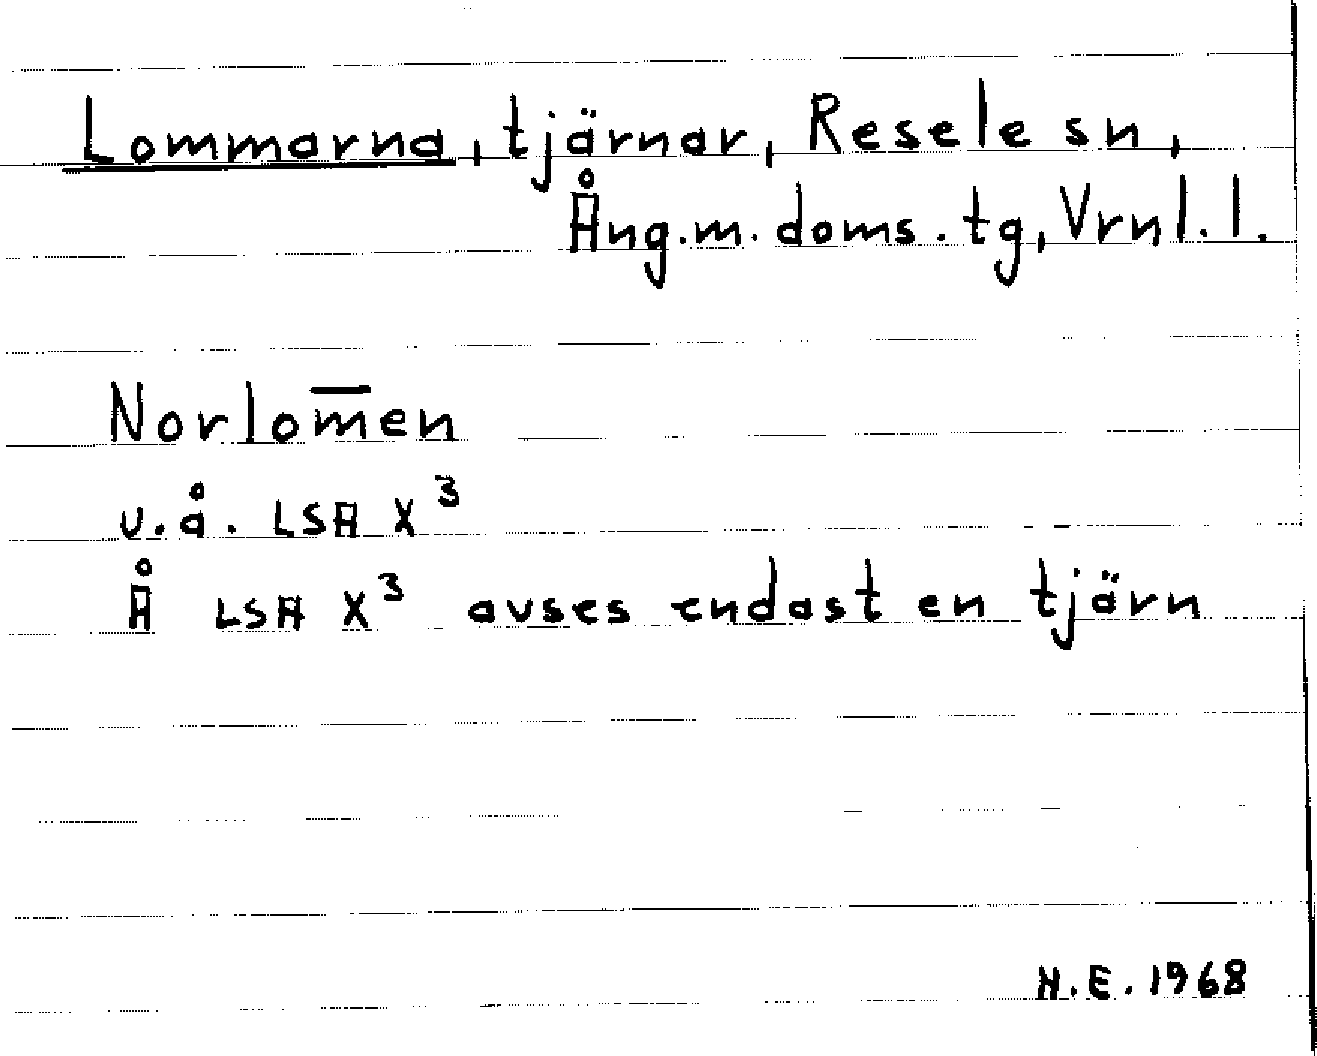 Lommarna, tjärnar, Resele sn,
Ång.m. doms. tg, Vrnl. l.
Norlom̅en
u.å. LSA X³
Å LSA X³ avses endast en tjärn
N.E. 1968